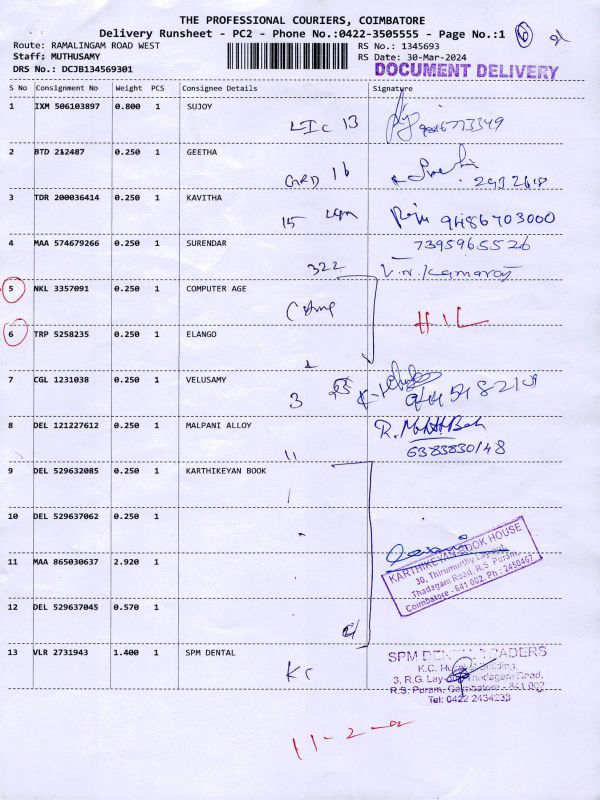 THE PROFESSIONAL COURIERS, COIMBATORE
Delivery Runsheet - PC2 - Phone No.:0422-3505555 - Page No.:1
Route: RAMALINGAM ROAD WEST RS No.: 1345693
Staff: MUTHUSAMY RS Date: 30-Mar-2024
DRS No.: DCJB134569301 DOCUMENT DELIVERY
S No Consignment No Weight PCS Consignee Details Signature
1 IXM 506103897 0.800 1 SUJOY
LIC 13
2 BTD 212487 0.250 1 GEETHA
GRD 16
3 TDR 200036414 0.250 1 KAVITHA
15 Raju 9486703000
4 MAA 574679266 0.250 1 SURENDAR 7395965526
322 V.N. Kamaraj
5 NKL 3357091 0.250 1 COMPUTER AGE
6 TRP 5258235 0.250 1 ELANGO
7 CGL 1231038 0.250 1 VELUSAMY
3
8 DEL 121227612 0.250 1 MALPANI ALLOY
11 6383830148
9 DEL 529632085 0.250 1 KARTHIKEYAN BOOK
10 DEL 529637062 0.250 1
11 MAA 865030637 2.920 1
12 DEL 529637045 0.570 1
KARTHIKEYAN BOOK HOUSE
30, Thirumurthy Layout,
Thadagam Road, R.S. Puram,
Coimbatore - 641 002, Ph : 2450467
4
13 VLR 2731943 1.400 1 SPM DENTAL
KC
SPM DENTAL TRADERS
K.C. Building,
3, R.G. Layout Thadagam Road,
R.S. Puram, Coimbatore - 641 002
Tel: 0422 2434233
11-2-2